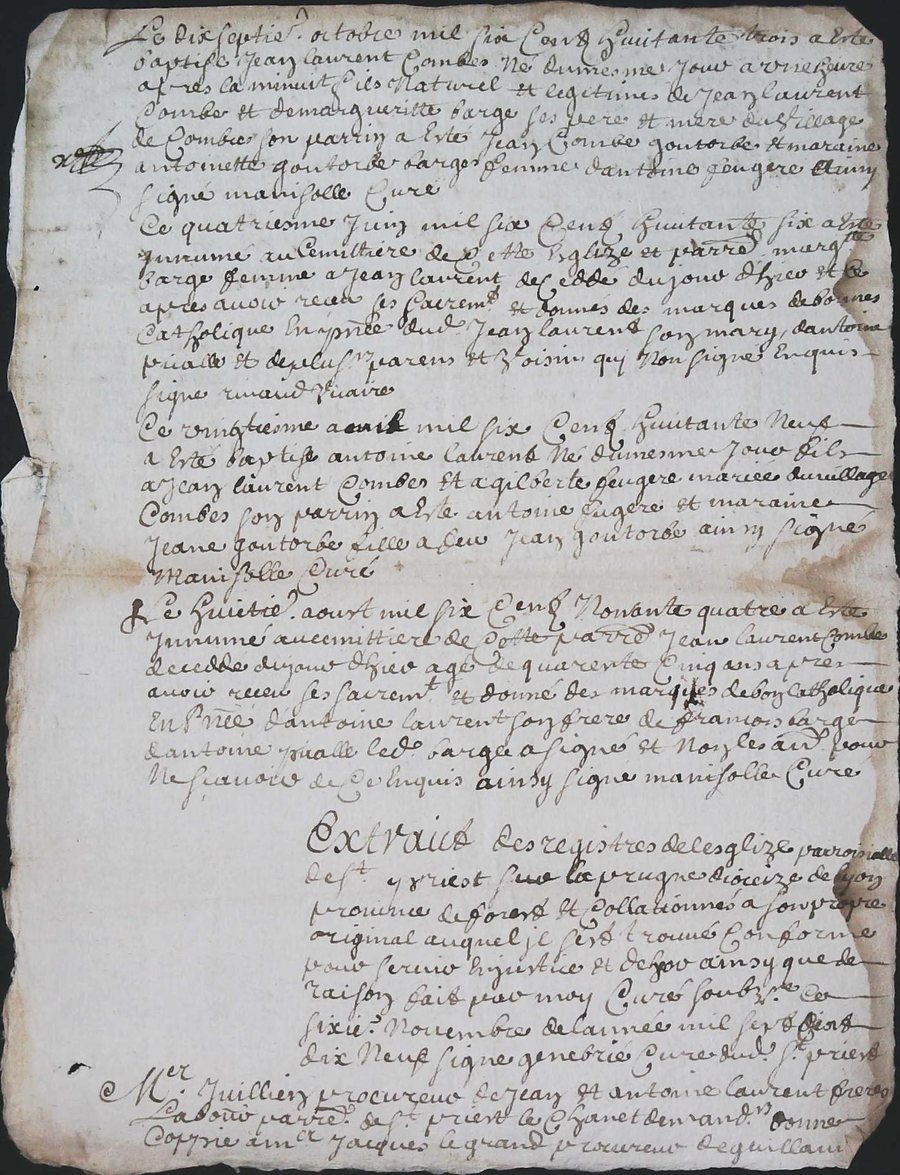 Le dixseptie. octobre mil six Cent huittante trois a este
baptise Jean laurent Combes Né dumesme Jour a une heure
apres la minuit fils Naturel et legitimes de Jean laurent
Combe et demargueritte barge ses pere et mere du Village
de Combes son parrin a Esté Jean Combe goutorbe et maraine
antoinette goutorbe barges femme dantoine feugere ainsy
signé manisolle Curé
Ce quatriesme Juin mil six Cent huittante six a este
Innumé au Cemittiere de Cette Eglize et parre. margte
barge femme a Jean laurent decedde dujour dhier et Ce
apres avoir receu ses sacremt. et donnés des marques de bonnes
Catholique En pnće dud. Jean laurent son mary, dantoine
prialle et de plusr. parens et Voisins qui Non signé Enquis
signe rinaud Vicaire
Ce vingtiesme avril mil six Cent huittante Neuf
a Esté baptise antoine laurent Né dumesme Jour fils
a Jean laurent Combes et a gilberte feugere mariee du village
Combes son parrin a Este antoine fugere et maraine
Jeane goutorbe fille a feu Jean goutorbe ainsy signé
Manisolle Curé
Le huictie. aoust mil six Cent Nonante quatre a Este
Innumé au cemittiere de Cette parre Jean laurent Combe
decedde dujour dhier agé de quarente Cinq ans apres
avoir receu ses sacremt. et donné des marques de bon Catholique
En Pnće dantoine laurent son frere de francois barge
dantoine prialle led. barge a signé et Non les aud. pour
Ne sçavoir de Ce Enquis ainsy signé manisolle Curé
Extraict des registres de lesglize parroissialle
de st. priest sur la prugne dioceize de lyon
province de forest et Collationnés a son propre
original auquel jl sest trouvé Conforme
pour servir En justice et dehor ainsy que de
raison fait par moy Curé soubzne. Ce
sixie. Novembre de lannée mil sept Cent
dix Neuf signe genebrié Cure dud. st. priest
Mer. Juillien procureur de Jean et antoine laurent freres
Labour parre. de st. priest le Chanet demandrs. donne
Coppie a mer Jacques le grand procureur de guillau